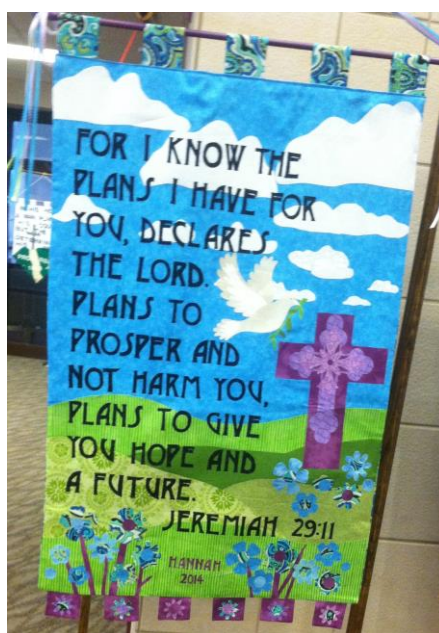 FOR I KNOW THE
PLANS I HAVE FOR
YOU, DECLARES
THE LORD.
PLANS TO
PROSPER AND
NOT HARM YOU,
PLANS TO GIVE
YOU HOPE AND
A FUTURE.
JEREMIAH 29:11
HANNAH
2014